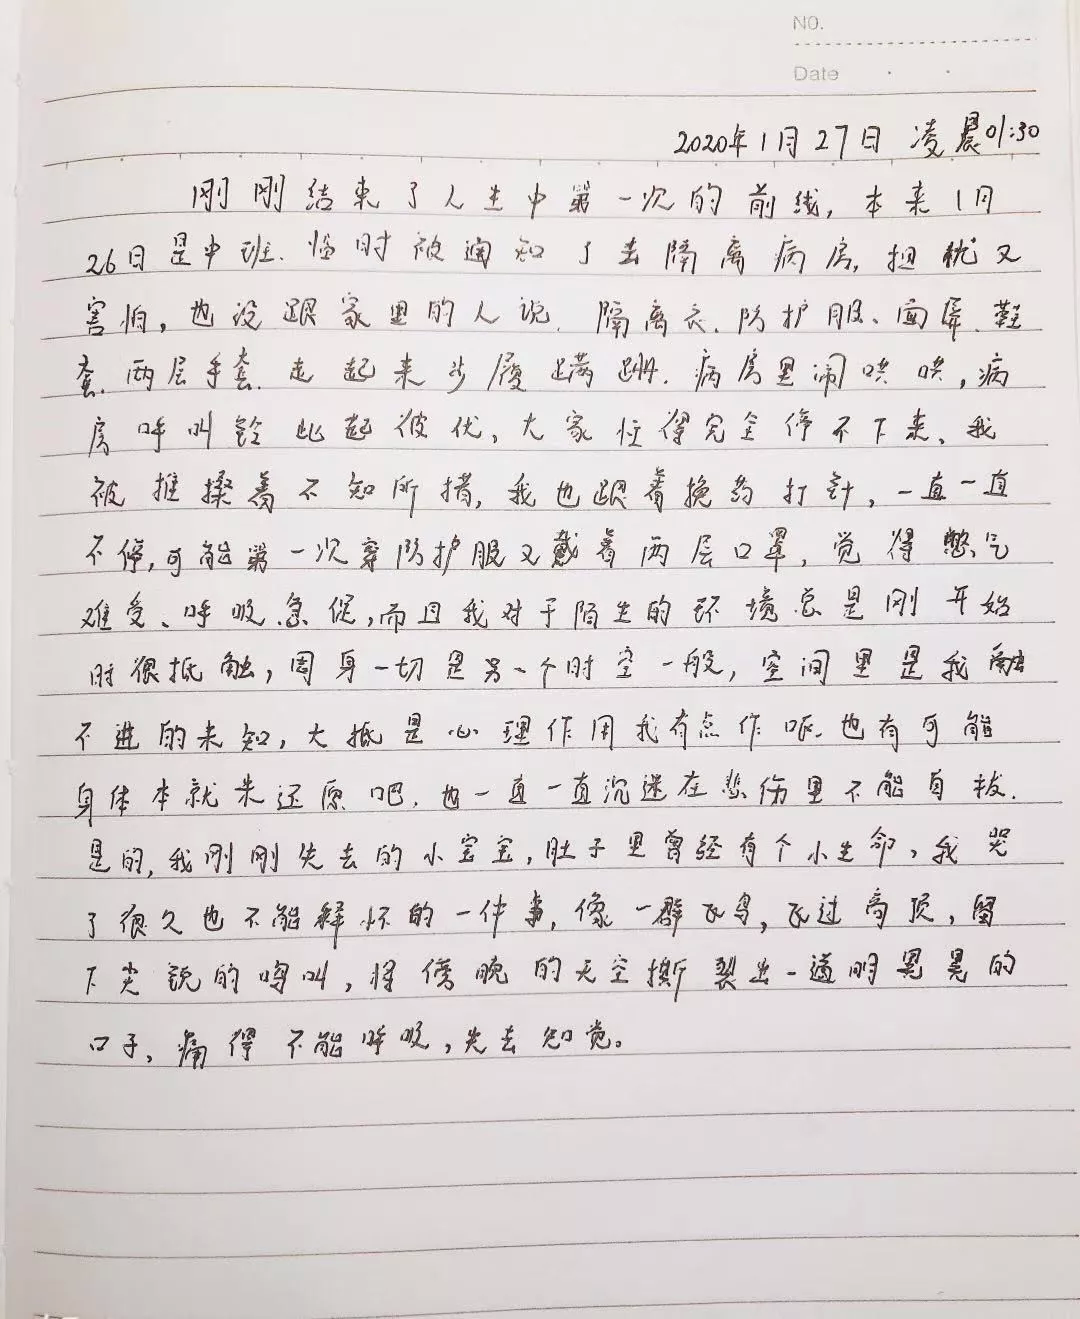 NO.
Date
2020年1月27日 凌晨01:30
刚刚结束了人生中第一次的前线,本来1月
26日是中班、临时被通知了去隔离病房,担忧又
害怕,也没跟家里的人说.隔离衣、防护服、面屏、鞋
套、两层手套、走起来步履蹒跚.病房里闹哄哄,病
房呼叫铃此起彼伏,大家忙得完全停不下来、我
被推搡着不知所措,我也跟着挽药打針,一直一直
不停,可能第一次穿防护服又戴着两层口罩,觉得憋气
难受、呼吸急促,而且我对于陌生的环境总是刚开始
时很抵触,周身一切是另一个时空一般,空间里是我融
不进的未知,大抵是心理作用我有点作呕.也有可能
身体本就未还原吧.也一直一直沉迷在悲伤里不能自拔.
是的,我刚刚失去的小宝宝,肚子里曾经有个小生命、我哭
了很久也不能释怀的一件事,像一群飞鸟,飞过高顶,留
下尖锐的鸣叫,将傍晚的天空撕裂出一道明晃晃的
口子、痛得不能呼吸,失去知觉。